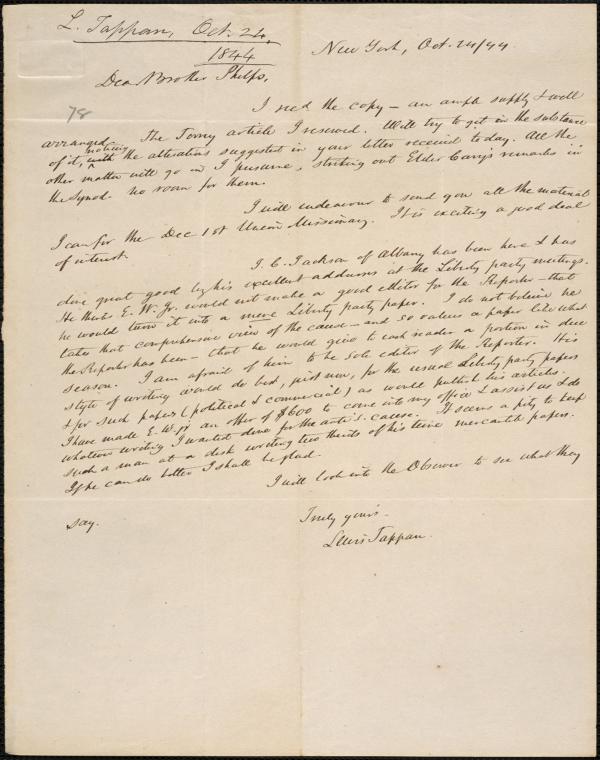 L. Tappan, Oct. 24,
1844
New York, Oct. 24/44.
Dear Brother Phelps,
78
I recd the copy — an ample supply & well
arranged. The Torrey article I received. Will try to get in the substance
of it, noticing the alterations suggested in your letter received today. All the
other matter will go in I presume, striking out Elder remarks in
the Synod. No room for them.
I will endeavour to send you all the material
I can for the Dec 1st Union Missionary. It is exciting a good deal
of interest.
J. C. Jackson of Albany has been here & has
done great good by his excellent addresses at the Liberty party meetings.
He thinks E. W. Jr. would not make a good editor for the Reporter — that
he would turn it into a mere Liberty party paper. I do not believe he
takes that comprehensive view of the cause — and so values a paper like what
the Reporter has been — that he would give to each reader a portion in due
season. I am afraid of him to be sole editor of the Reporter. His
style of writing would do best, just now, for the usual Liberty party papers
& for such papers (political & commercial) as would publish his articles.
I have made E. W. jr an offer of $600 to come into my office & assist us & do
whatever writing I wanted done for the anti s. cause. It seems a pity to keep
such a man at a desk writing two thirds of his time mercantile papers.
If he can do better I shall be glad.
I will look into the Observer to see what they
say.
Truly yours
Lewis Tappan.